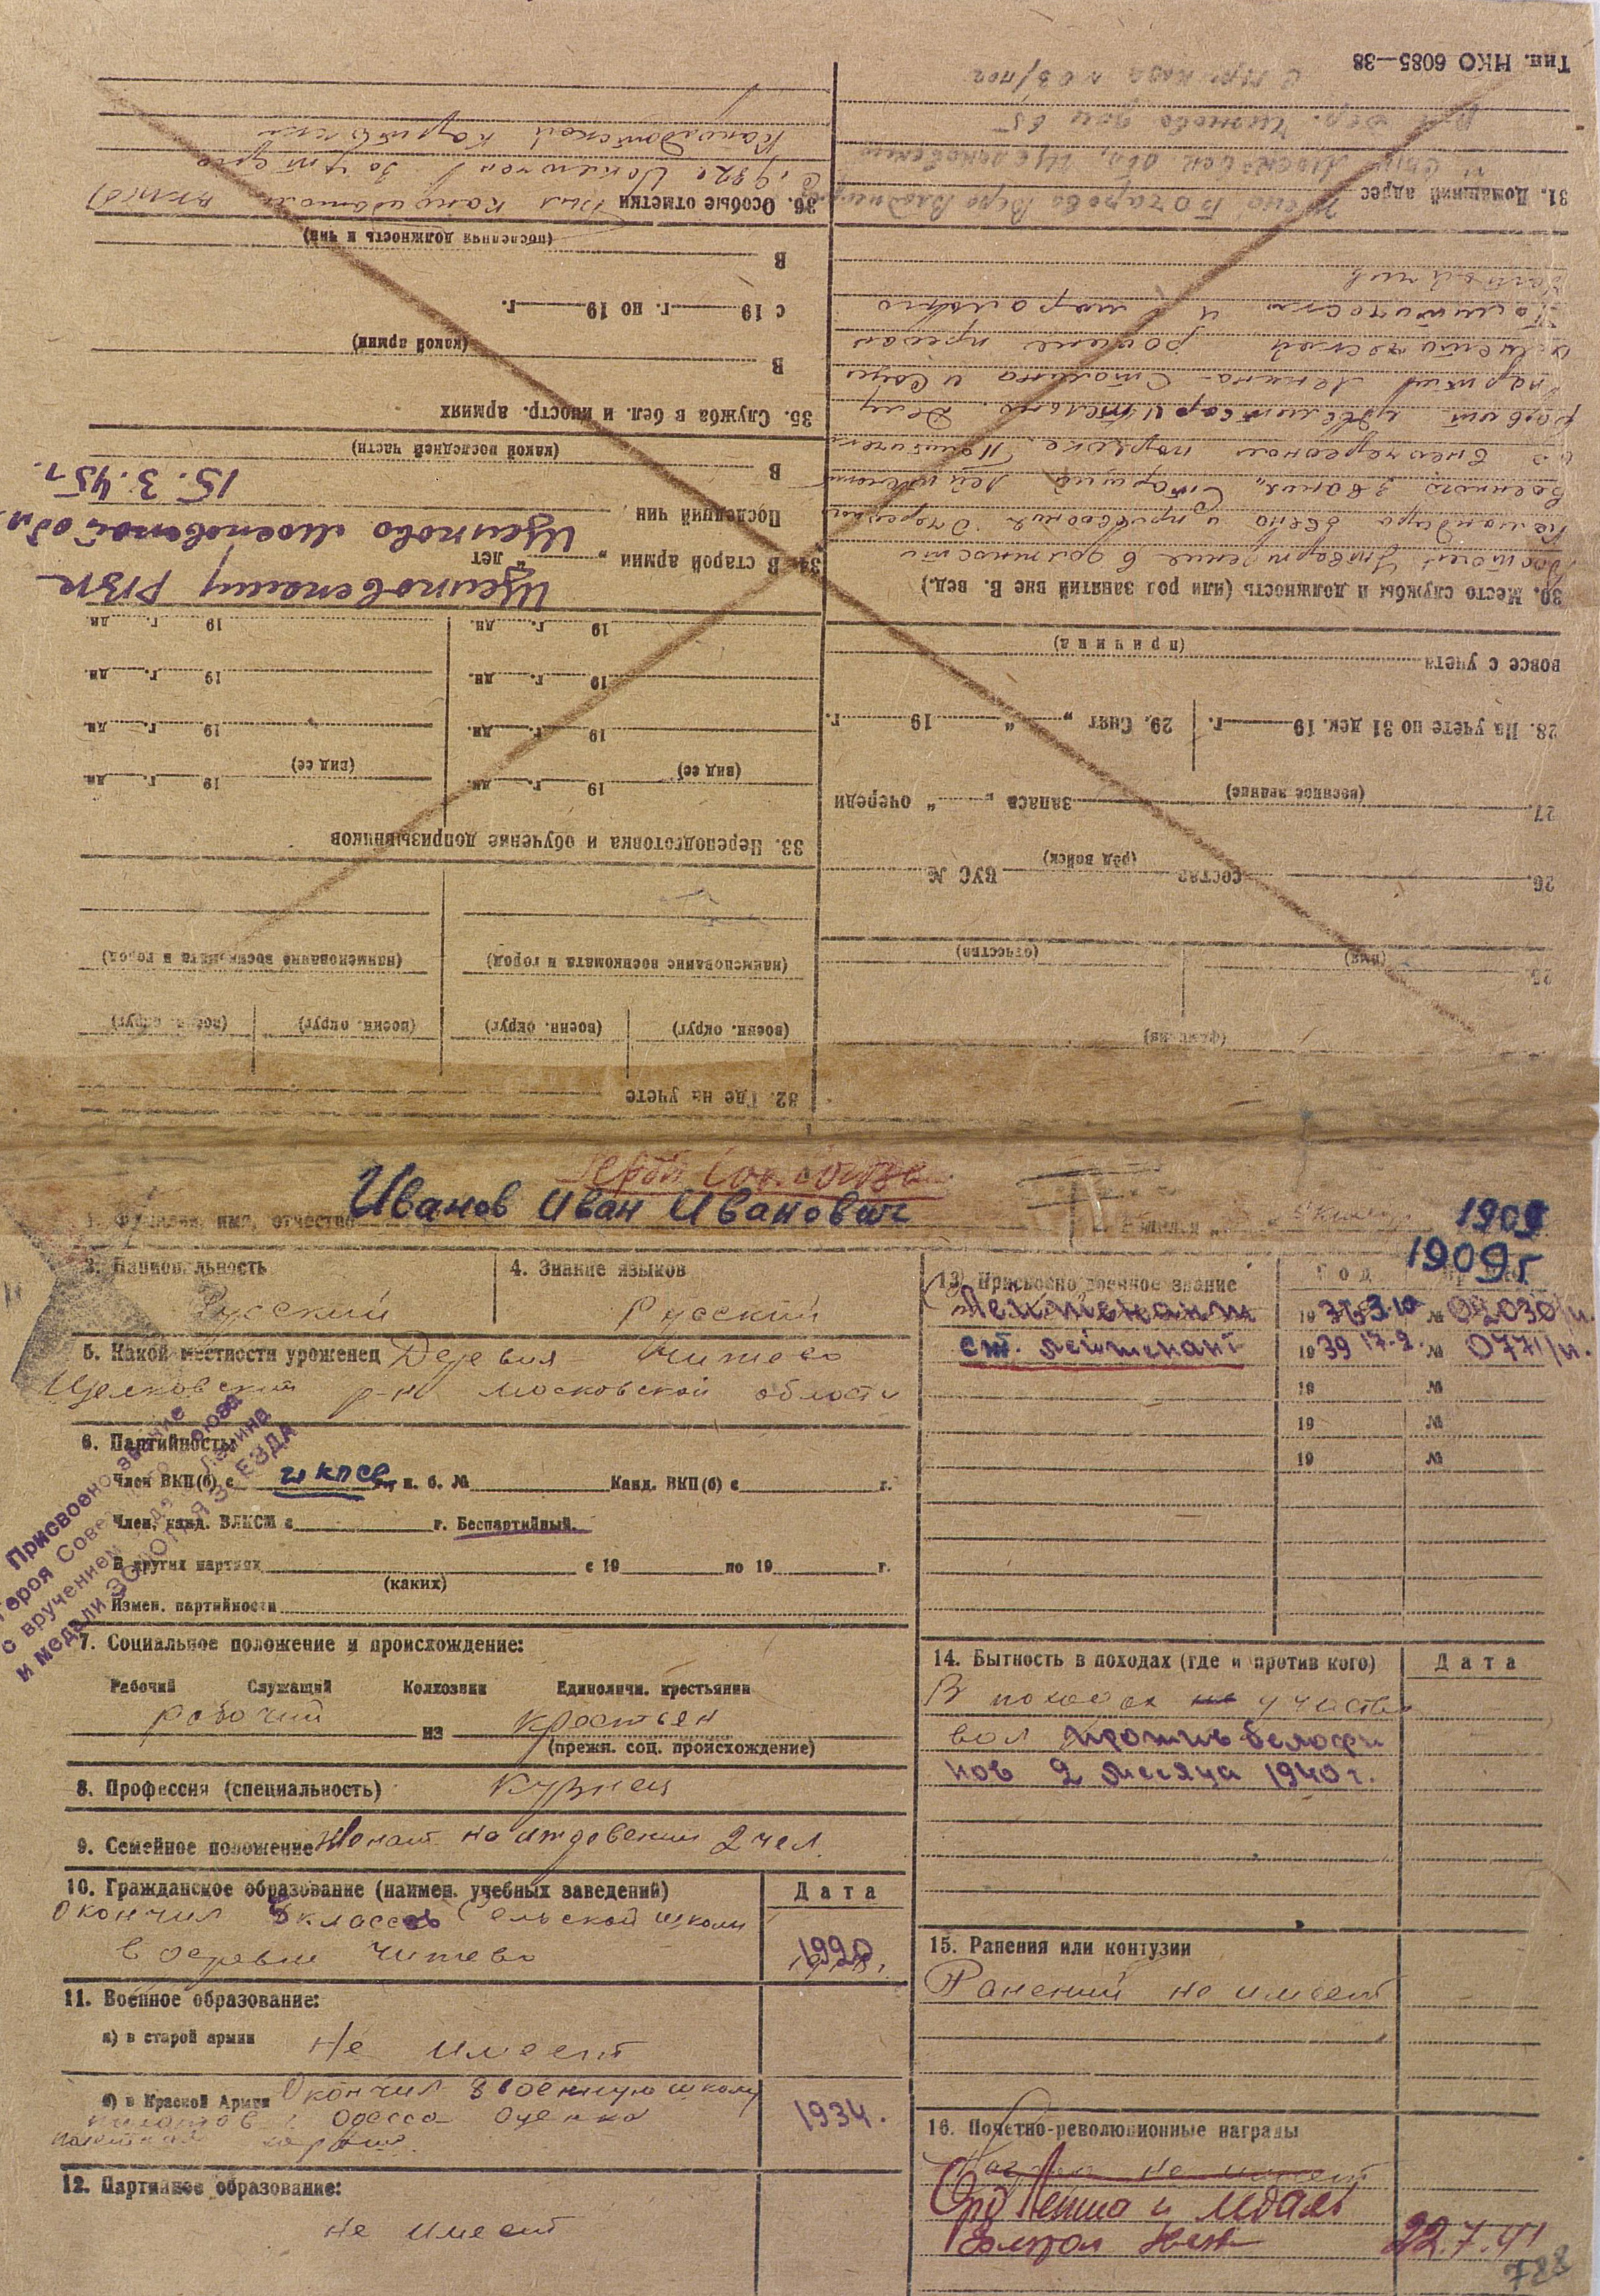 Тип. НКО 6085—38
31. Домашний адрес Жена Бочарова Вера
36. Особые отметки Был кандидатом ВКП(б)
(последняя должность и чин)
В
с 19 г. по 19 г.
(какой армии)
В
35. Служба в бел. и иностр. армиях
(какой последней части)
В
15.3.45 г.
Последний чин
Щелково Московской обл.
34. В старой армии „ “ лет
Щелковскому РВК
30. Место службы и должность (или род занятий вне В. вед.)
Достоен утверждение в должности
командира звена и присвоения очередного
военного звания „Старший лейтенант“
во внеочередном порядке. Политически
развит удовлетворительно. Делу
партии Ленина-Сталина и социа
листической родине предан
Политически и морально
устойчив
(причина)
вовсе с учета
28. На учете по 31 дек. 19 г.
29. Снят „ “ 19 г.
27. (военное звание) запаса „ “ очереди
26. состав (род войск) ВУС №
25. (фамилия)
(имя) (отчество)
33. Переподготовка и обучение допризывников
(вид ее) 19 г. дн.
(вид ее) 19 г. дн.
19 г. дн.
19 г. дн.
19 г. дн.
19 г. дн.
19 г. дн.
19 г. дн.
(наименование военкомата и город)
(наименование военкомата и город)
(воен. округ) (воен. округ) (воен. округ) (воен. округ)
32. Где на учете
Герой Сов. союза
1. Фамилия, имя, отчество Иванов Иван Иванович
2. Родился 1909
1909 г
3. Национальность
Русский
4. Знание языков
Русский
5. Какой местности уроженец Деревня Чижево
Щелковский р-н Московской области
6. Партийность:
Член ВКП(б) с чл КПСС п. б. № Канд. ВКП(б) с г.
Член, канд. ВЛКСМ с г. Беспартийный.
В других партиях с 19 по 19 г.
(каких)
Измен. партийности
Присвоено звание
Героя Советского Союза
с вручением ордена Ленина
и медали ЗОЛОТАЯ ЗВЕЗДА
7. Социальное положение и происхождение:
Рабочий Служащий Колхозник Единоличн. крестьянин
рабочий из крестьян
(прежн. соц. происхождение)
8. Профессия (специальность) Кузнец
9. Семейное положение Женат на иждевении 2 чел.
10. Гражданское образование (наимен. учебных заведений)
Дата
Окончил классов Сельской школы
в деревне Чижево
11. Военное образование:
а) в старой армии Не имеет
б) в Красной Армии Окончил 8 военную школу
пилотов г. Одесса оценка
хорошо.
1934.
12. Партийное образование:
не имеет
13. Присвоено военное звание
Год Приказ
Лейтенант 19 36 3.10 № 02030/п.
ст. лейтенант 19 39 17.2. № 0771/п.
19 №
19 №
19 №
14. Бытность в походах (где и против кого)
Дата
В походах не участво
вал против белофи
нов 2 месяца 1940 г.
15. Ранения или контузии
Ранений не имеет
16. Почетно-революционные награды
Наград не имеет
Орд Ленина и медаль
Золотая Звезда 22.7.41
788